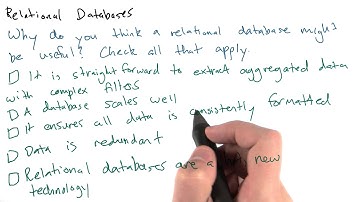 Relational Databases
Why do you think a relational database might
be useful? Check all that apply.
It is straightforward to extract aggregated data
with complex filters
A database scales well
It ensures all data is consistently formatted
Data is redundant
Relational databases are a new
technology